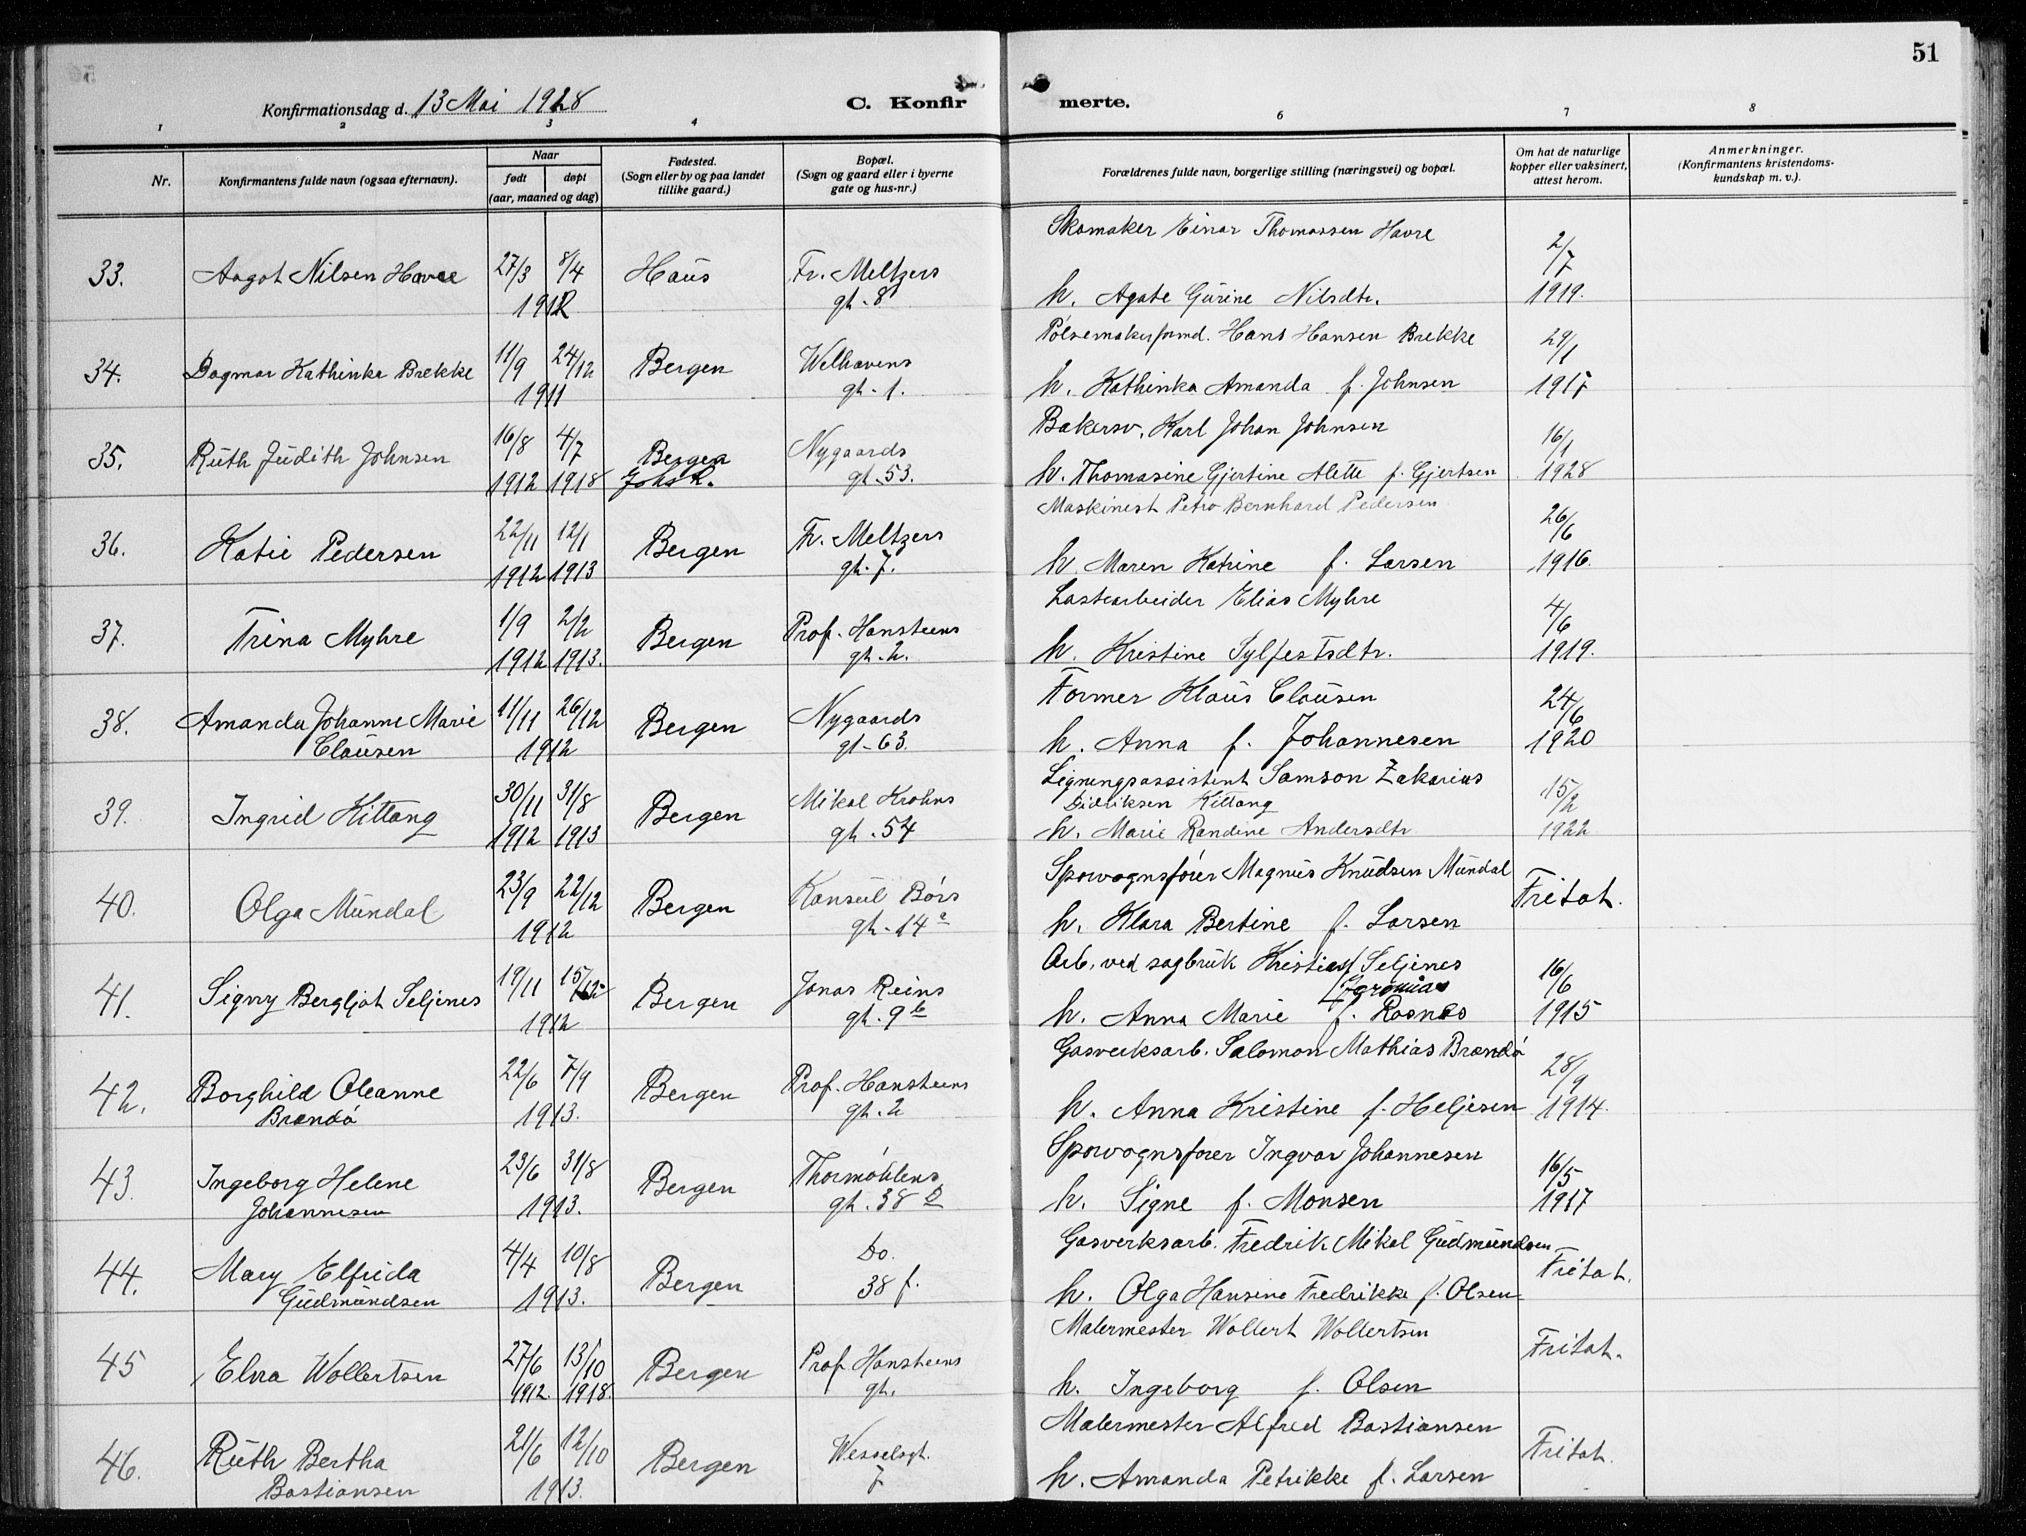 51
Konfirmationsdag d. 13 Mai 1928
C. Konfir merte.
1 2 3 4 6 7 8
Nr.
Konfirmantens fulde navn (ogsaa efternavn).
Naar
født døpt
(aar, maaned og dag)
Fødested.
(Sogn eller by og paa landet
tillike gaard.)
Bopæl.
(Sogn og gaard eller i byerne
gate og hus-nr.)
Forældrenes fulde navn, borgerlige stilling (næringsvei) og bopæl.
Om hat de naturlige
kopper eller vaksinert,
attest herom.
Anmerkninger.
(Konfirmantens kristendoms-
kundskap m. v.).
Skomaker Einar Thomassen Havre
33. Aagot Nilsen Havre 27/3 8/4 Haus Fr. Meltzers 2/7
1912 gt. 8 h. Agate Gurine Nilsdtr. 1919.
Pølsemakerformd. Hans Hansen Brekke
34. Dagmar Kathinka Brekke 11/9 24/12 Bergen Welhavens 29/1
1911 gt. 1. h. Kathinka Amanda f. Johnsen 1915
Bakersv. Karl Johan Johnsen
35. Ruth Judith Johnsen 16/8 4/7 Bergen Nygaards 16/1
1912 1918 Johs K. gt. 53. h. Thomasine Gjertine Alette f. Gjertsen 1928
Maskinist Petro Bernhard Pedersen
36. Katie Pedersen 22/11 12/1 Bergen Fr. Meltzers 26/6
1912 1913 gt. 7. h. Maren Katrine f. Larsen 1916
Lastearbeider Elias Myhre
37. Trina Myhre 1/9 2/2 Bergen Prof. Hansteens 4/6
1912 1913. gt. 2. h. Kristine Sylfestsdtr. 1919.
Former Klaus Clausen
38. Amanda Johanne Marie 11/11 26/12 Bergen Nygaards 24/6
Clausen 1912 gt. 63. h. Anna f. Johannesen 1920
Ligningsassistent Samson Zakarius
39. Ingrid Kittang 30/11 31/8 Bergen Mikal Krohns Didriksen Kittang 15/2
1912 1913 gt. 54 h. Marie Randine Andersdtr. 1922
Sporvognsfører Magnus Knudsen Mundal
40. Olga Mundal 23/9 22/12 Bergen Konsul Børs Fritat.
1912 gt. 14 a h. Klara Bertine f. Larsen
Arb. ved sagbruk Kristian Seljenes
41. Signy Bergljot Seljenes 19/11 15/12 Bergen Jonas Reins 16/6
1912 gt. 9 b h. Anna Marie f. Rosnes 1915
Gasverksarb. Salomon Mathias Brandø
42. Borghild Oleanne 22/6 7/9 Bergen Prof. Hansteens 28/9
Brandø 1913. gt. 2 h. Anna Kristine f. Heljesen 1914.
Sporvognsfører Ingvar Johannesen
43. Ingeborg Helene 23/6 31/8 Bergen Thormøhlens 16/5
Johannesen 1913. gt. 38 D h. Signe f. Monsen 1917
Gasverksarb. Fredrik Mikal Gudmundsen
44. Mary Elfrida 4/4 10/8 Bergen Do. Fritat.
Gudmundsen 1913. 38 f. h. Olga Hansine Fredrikke f. Olsen
Malermester Wollert Wollertsen
45 Elna Wollertsen 27/6 13/10 Bergen Prof. Hansteens Fritat.
1912. 1918. gt. h. Ingeborg f. Olsen
Malermester Alfred Bastiansen
46. Ruth Bertha 21/6 12/10 Bergen Wesselsgt. Fritat.
Bastiansen 1913. 7 h. Amanda Petrikke f. Larsen